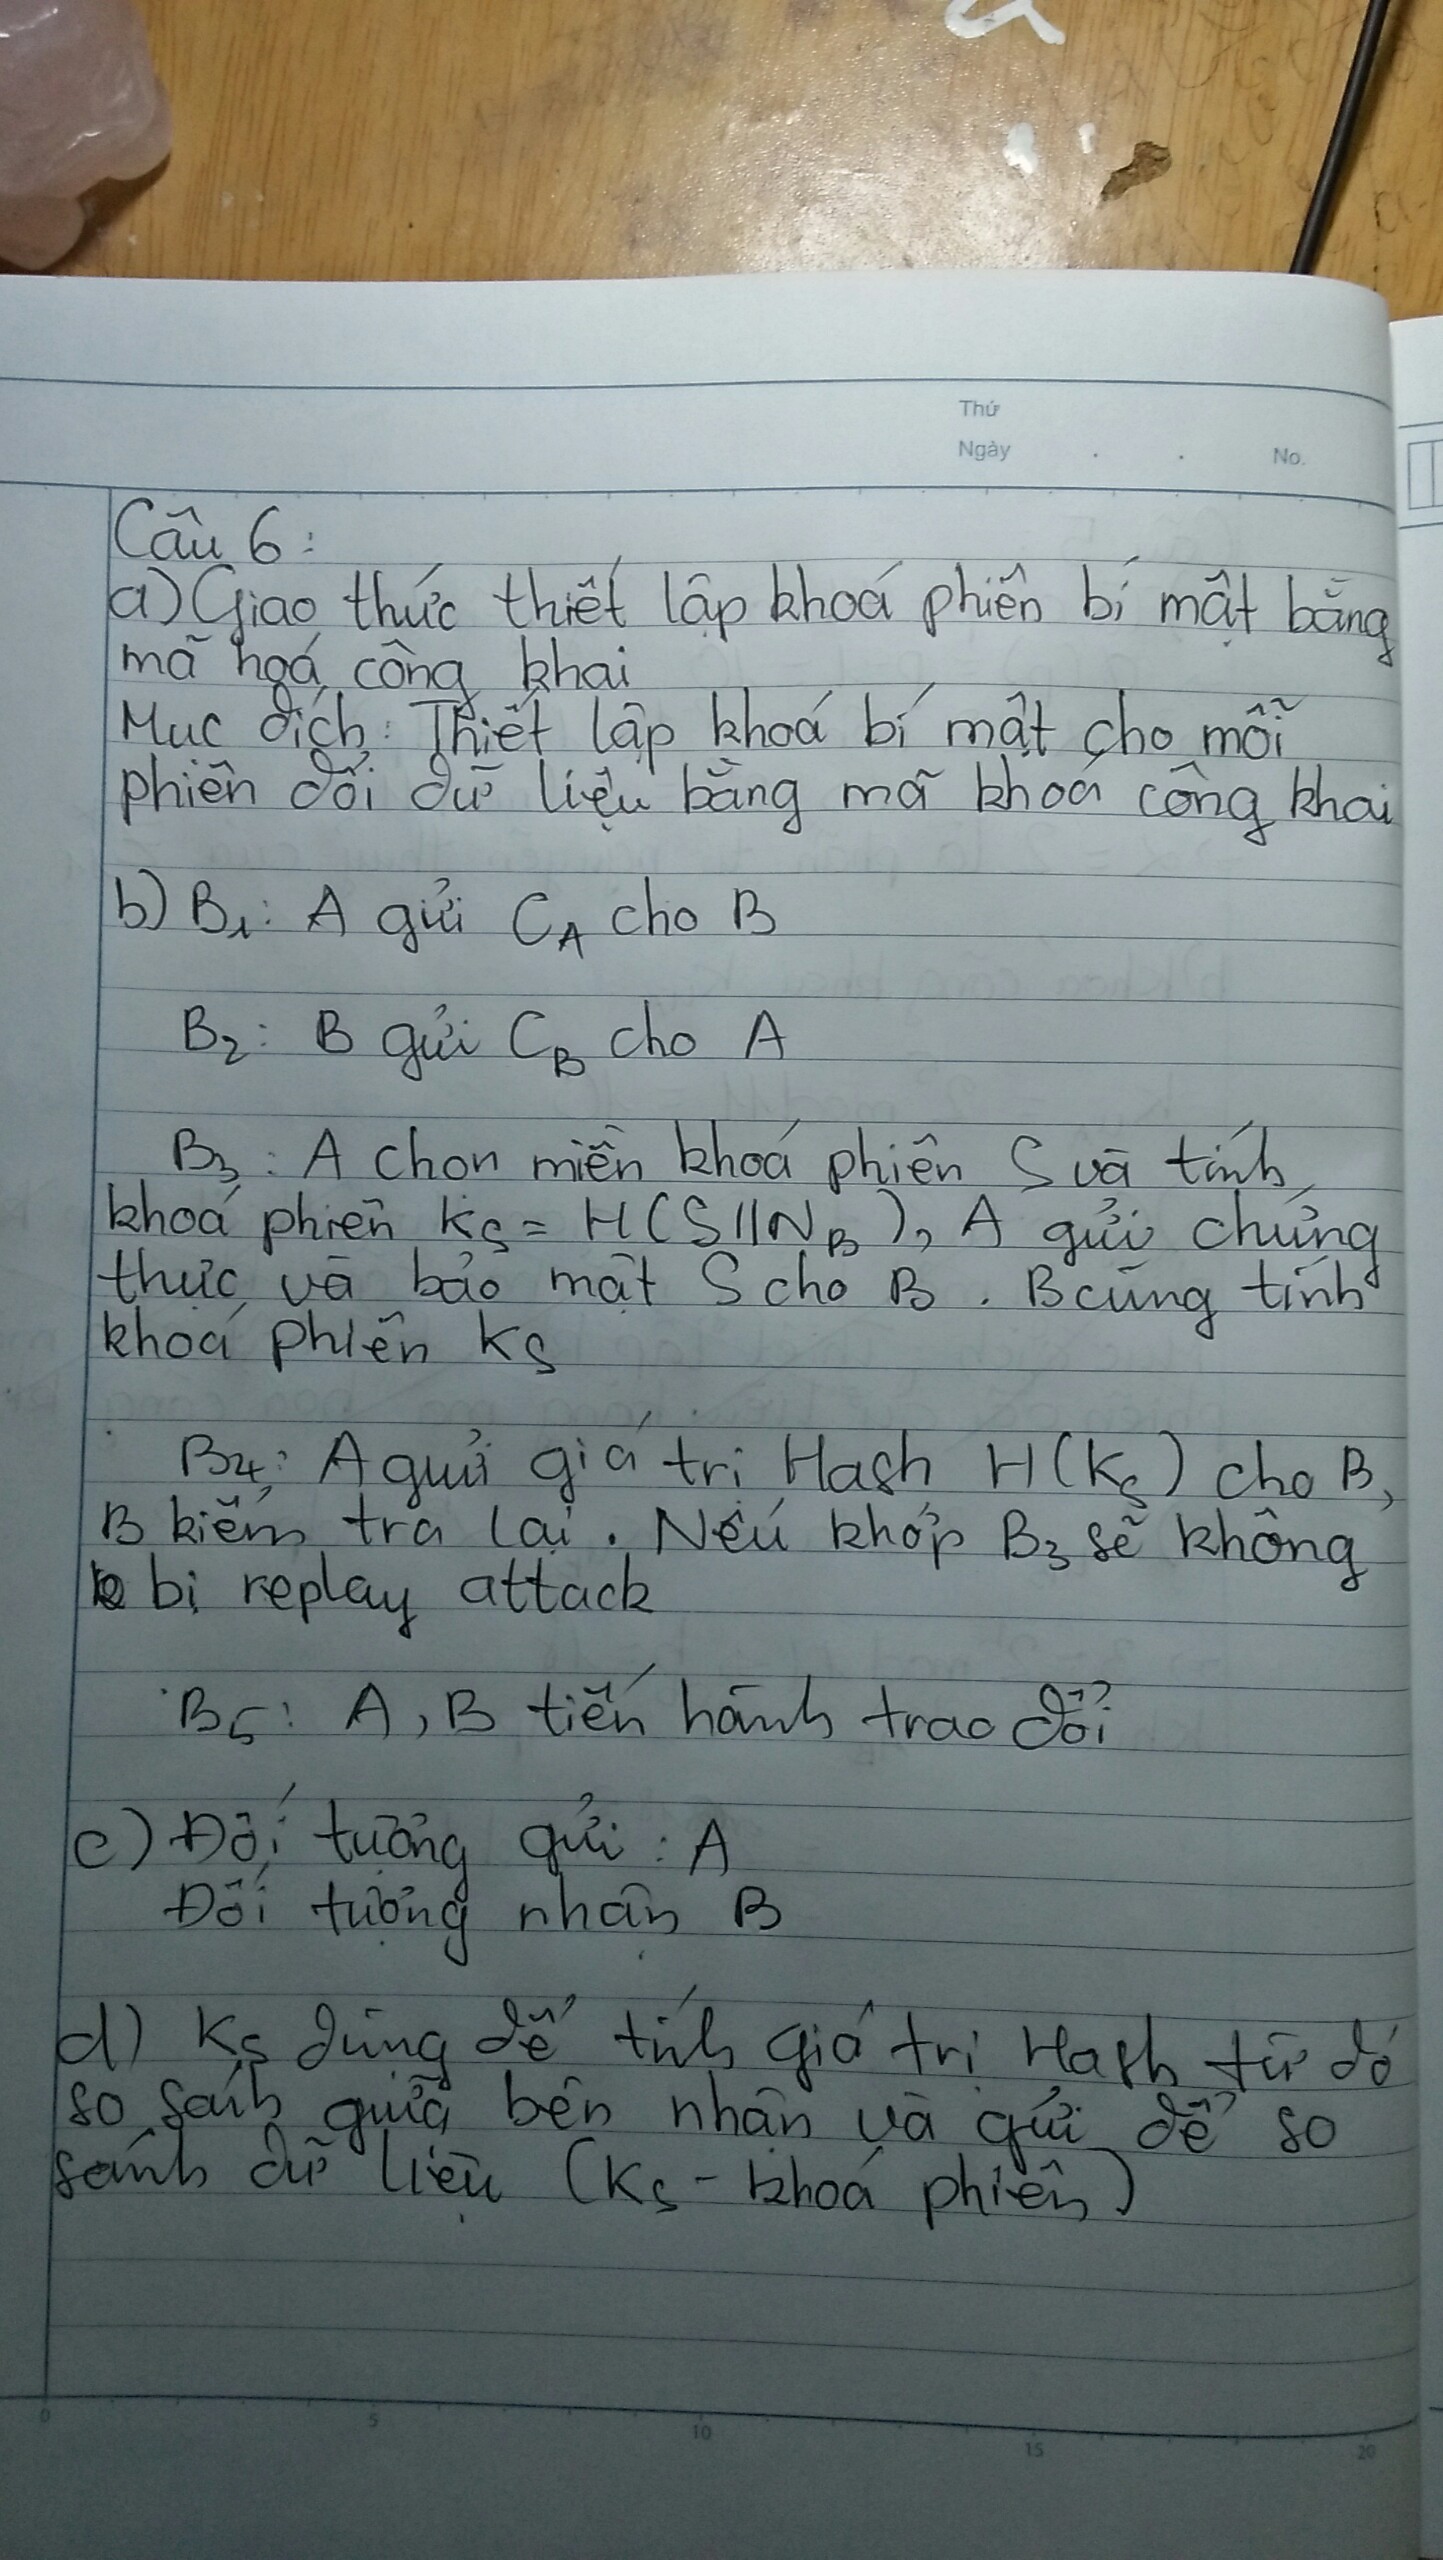 Thứ
Ngày . . No.
Câu 6:
a) Giao thức thiết lập khoá phiên bí mật bằng
mã hoá công khai
Mục đích: Thiết lập khoá bí mật cho mỗi
phiên đổi dữ liệu bằng mã khoá công khai
b) B1: A gửi CA cho B
B2: B gửi CB cho A
B3: A chọn miền khoá phiên S và tính
khoá phiên KS = H(S||NB), A gửi chứng
thực và bảo mật S cho B. B cũng tính
khoá phiên KS
B4: A gửi giá trị Hash H(KS) cho B,
B kiểm tra lại. Nếu khớp B3 sẽ không
bị replay attack
B5: A, B tiến hành trao đổi
c) Đối tượng gửi: A
Đối tượng nhận B
d) KS dùng để tính giá trị Hash từ đó
so sánh giữa bên nhận và gửi để so
sánh dữ liệu (KS - khoá phiên)
0 5 10 15 20